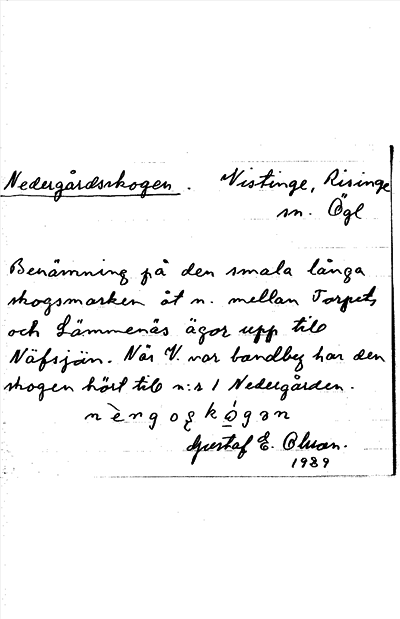 Nedergårdsskogen. Vistinge, Risinge
sn. Ögl
Benämning på den smala långa
skogsmarken åt n. mellan Torpets
och Lämmenäs ägor upp till
Näfsjön. När V. var bandby har den
skogen hört till n:r 1 Nedergården.
Gustaf E. Olsson.
1989